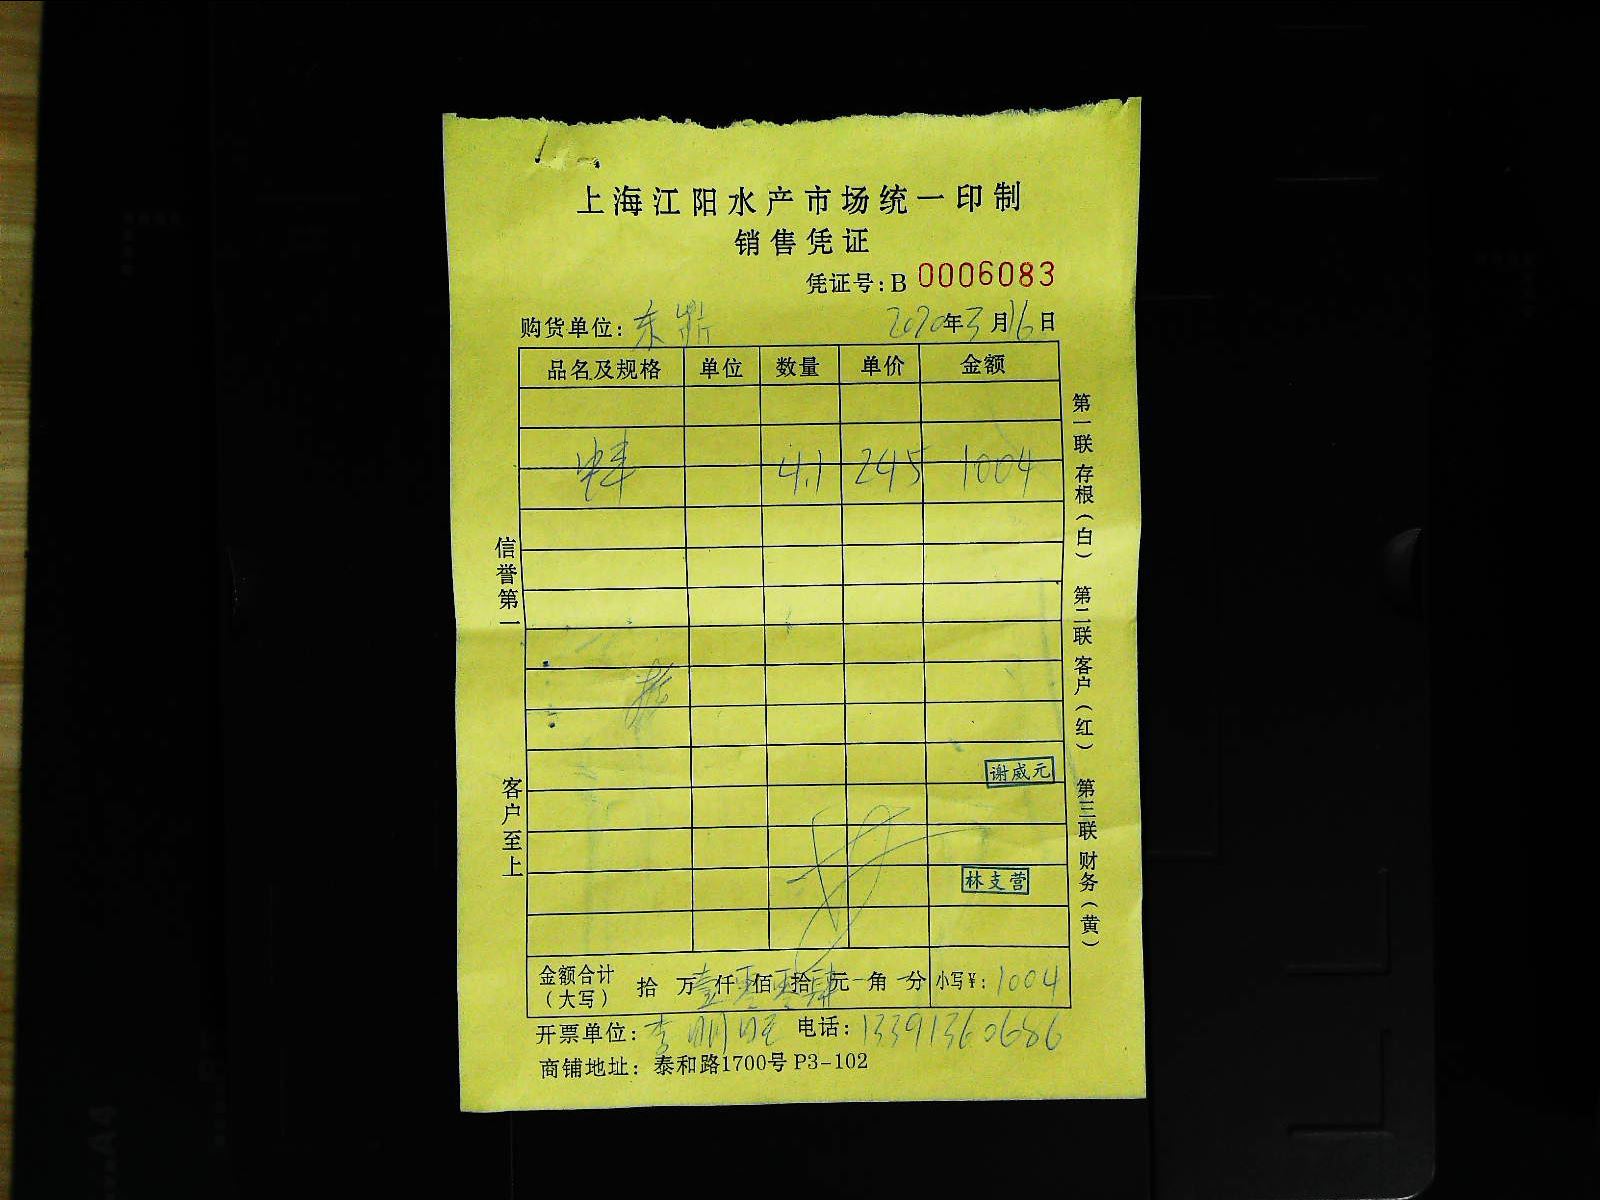 上海江阳水产市场统一印制
销售凭证
凭证号：B 0006083
购货单位：东鼎 2020年3月16日
品名及规格 单位 数量 单价 金额
4.1 245 1004
谢威元
林支营
金额合计（大写） 拾 万壹仟零佰零拾肆元 角 分 小写¥：1004
开票单位：李明旺 电话：13391360686
商铺地址：泰和路1700号P3-102
信誉第一
客户至上
第一联 存根（白） 第二联 客户（红） 第三联 财务（黄）